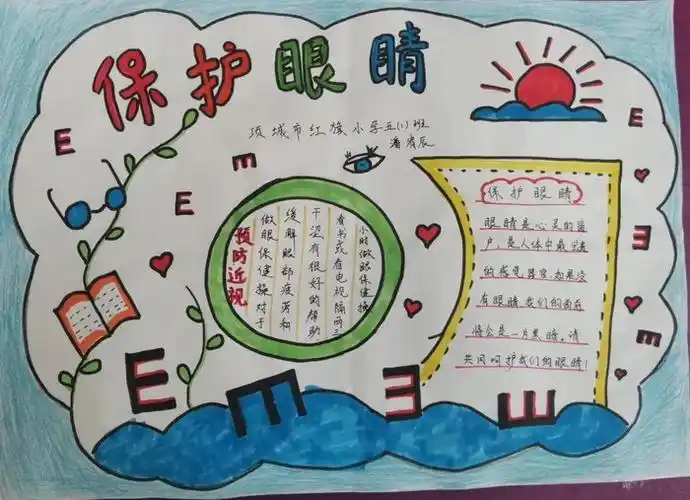 保护眼睛
项城市红旗小学五(1)班
潘宥辰
E
E
E
预防近视
做眼保健操对于
缓解眼部疲劳和
干涩有很好的帮助
看书或看电视隔两三
小时做眼保健操
保护眼睛
眼睛是心灵的窗
户,是人体中最宝贵
的感觉器官.如果没
有眼睛我们的面前
将会是一片黑暗,请
共同呵护我们的眼睛!
E
E
E
E
E
E
E